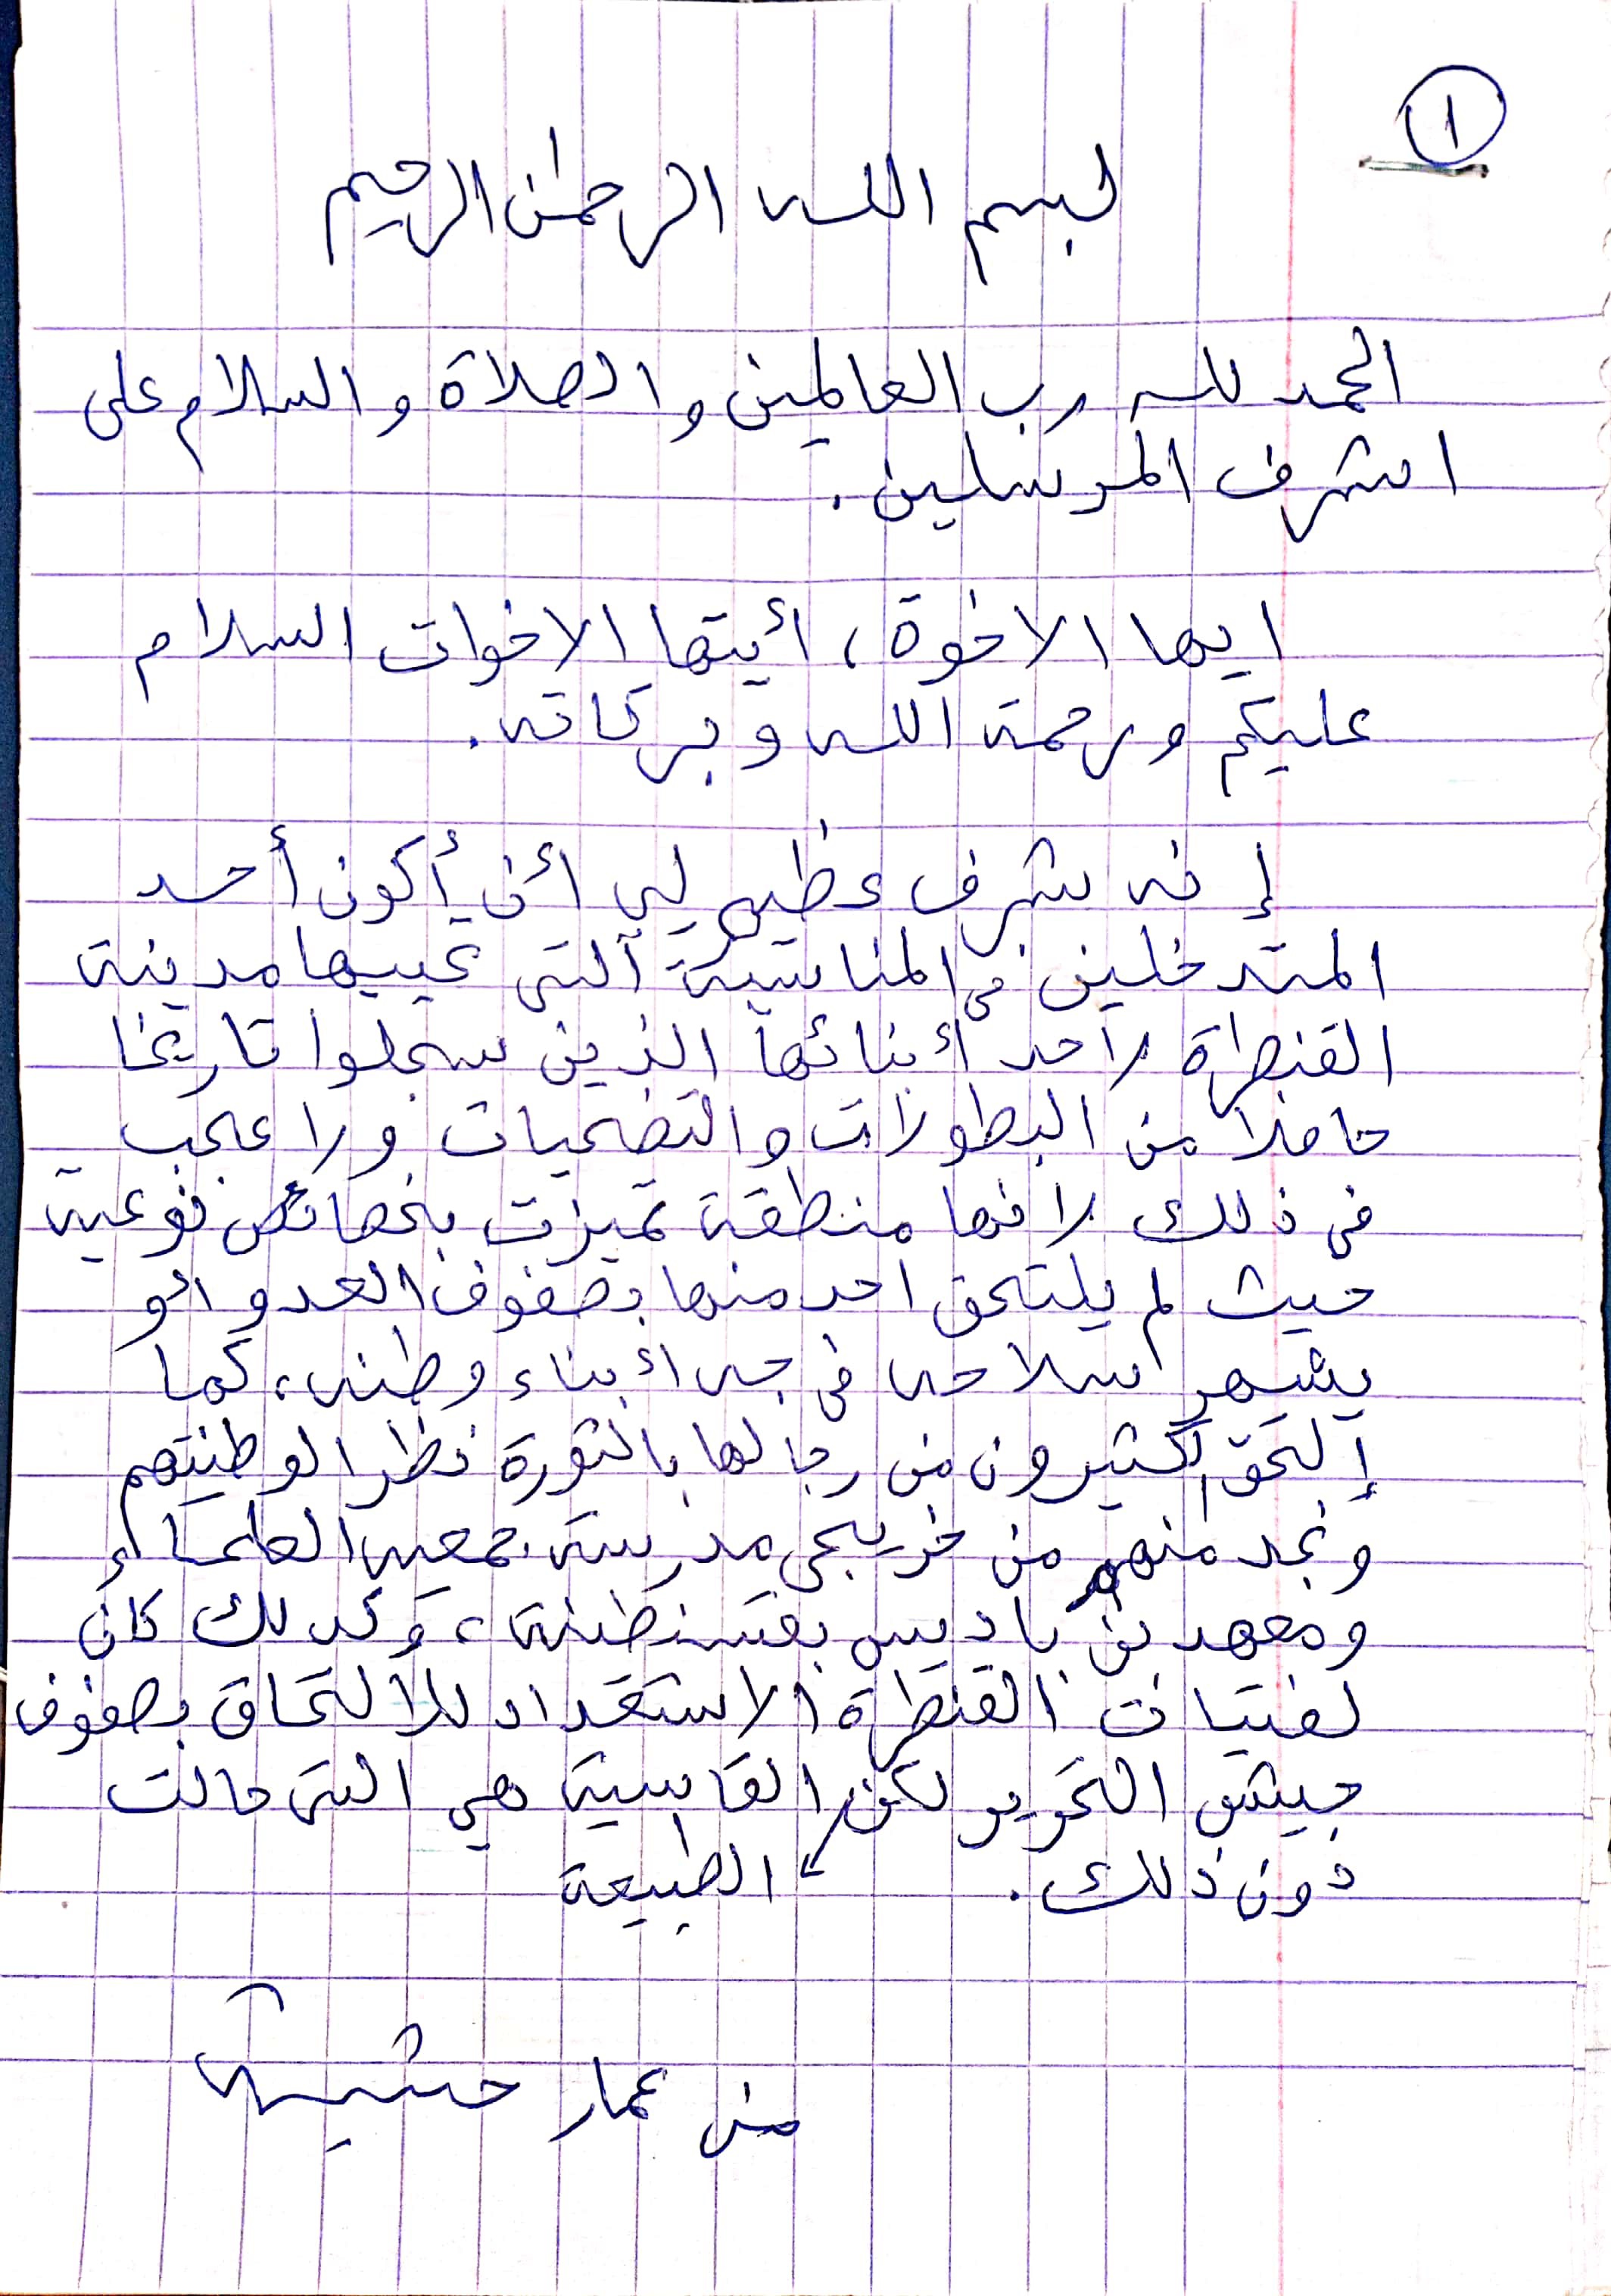 ١
لبسم الله الرحمٰن الرحيم
الحمد لله رب العالمين والصلاة والسلام على
اشرف المرسلين.
ايها الاخوة، أيتها الاخوات السلام
عليكم ورحمة الله وبركاته.
إنه شرف عظيم لي أن أكون أحد
المتدخلين في المناسبة التي تحييها مدينة
القنطرة لأحد أبنائها الذين سجلوا تاريخا
حافلا من البطولات والتضحيات ولا عجب
في ذلك لانها منطقة تميزت بخصائص نوعية
حيث لم يلتحق احد منها بصفوف العدو او
يشهر سلاحه في جه أبناء وطنه، كما
إلتحق الكثيرون من رجالها بالثورة نظرا لوطنيتهم
ونجد منهم من خريجي مدرسة جمعية العلماء
ومعهد بن باديس بقسنطينة، وكدلك كان
لفتيات القنطرة الاستعداد للالتحاق بصفوف
جيش التحرير لكن القاسية هي التي حالت
دون ذلك. الطبيعة
من عمار حشية